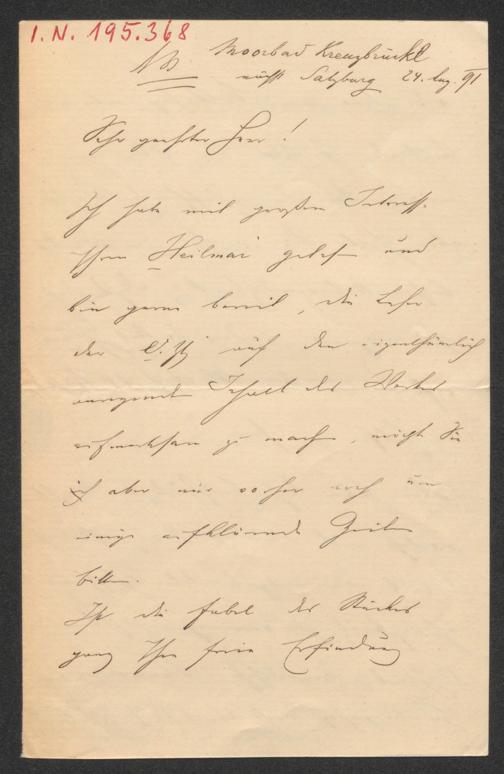 I.N. 195.368
NB Moorbad Kreuzbrückl
nächst Salzburg 24. Aug. 91
Sehr geehrter Herr!
Ich habe mit großem Interesse
Ihren „Heilmar“ gelesen und
bin gerne bereit, die Leser
der auf den eigenthümlich
anregenden Inhalt des Werkes
aufmerksam zu machen, möchte Sie
ich aber nur vorher noch um
einige aufklärende Zeilen
bitten.
Ist die Fabel des Stückes
ganz Ihre freie Erfindung